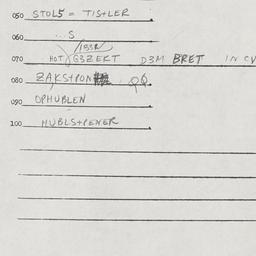 050 STOL5 = TIS+LER
060 S
070 HOT G3ZEKT D3M BRET IN CV
080 ZAKS+PON
090 OPHUBLEN
100 HUBLS+PENER